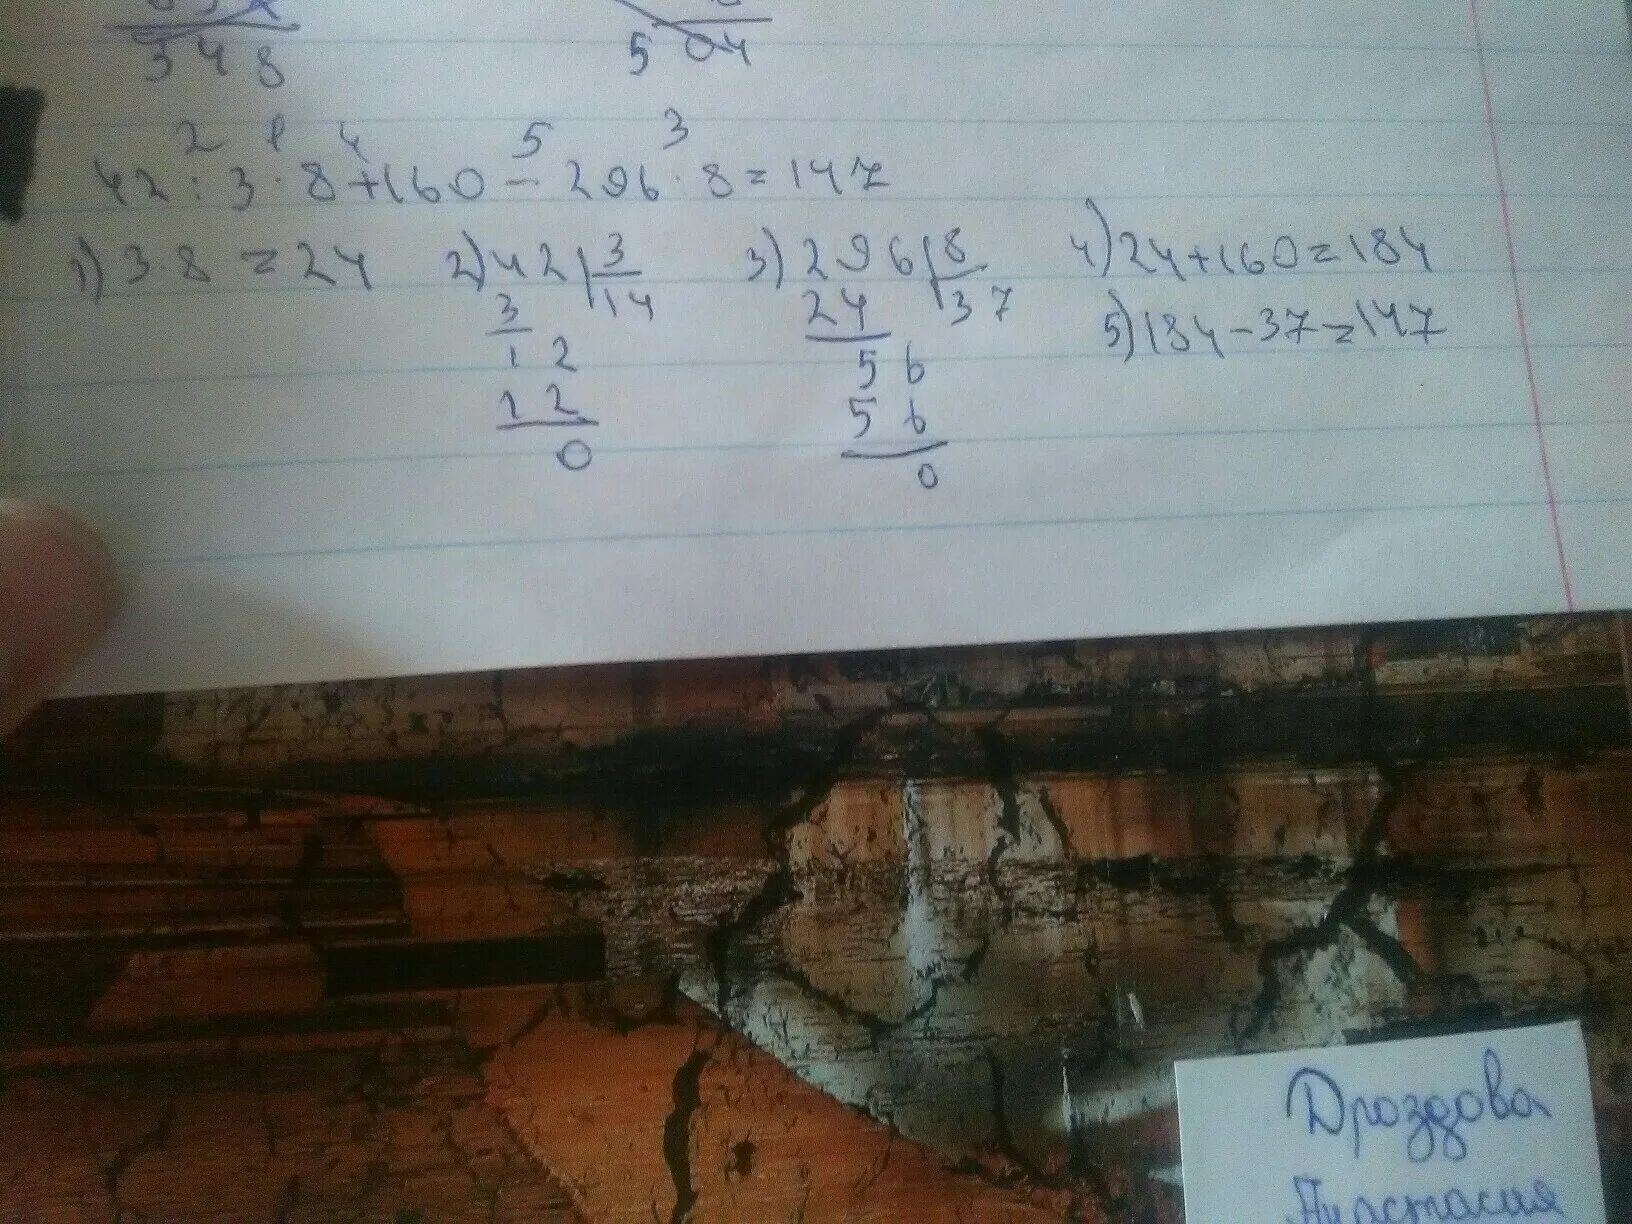 348 504
2 1 4 5 3
42 : 3 · 8 + 160 - 296 · 8 = 147
1) 3 · 8 = 24 2) 42 | 3 3) 296 | 8 4) 24 + 160 = 184
3 14 24 37 5) 184 - 37 = 147
12 56
12 56
0 0
Дроздова
Анастасия